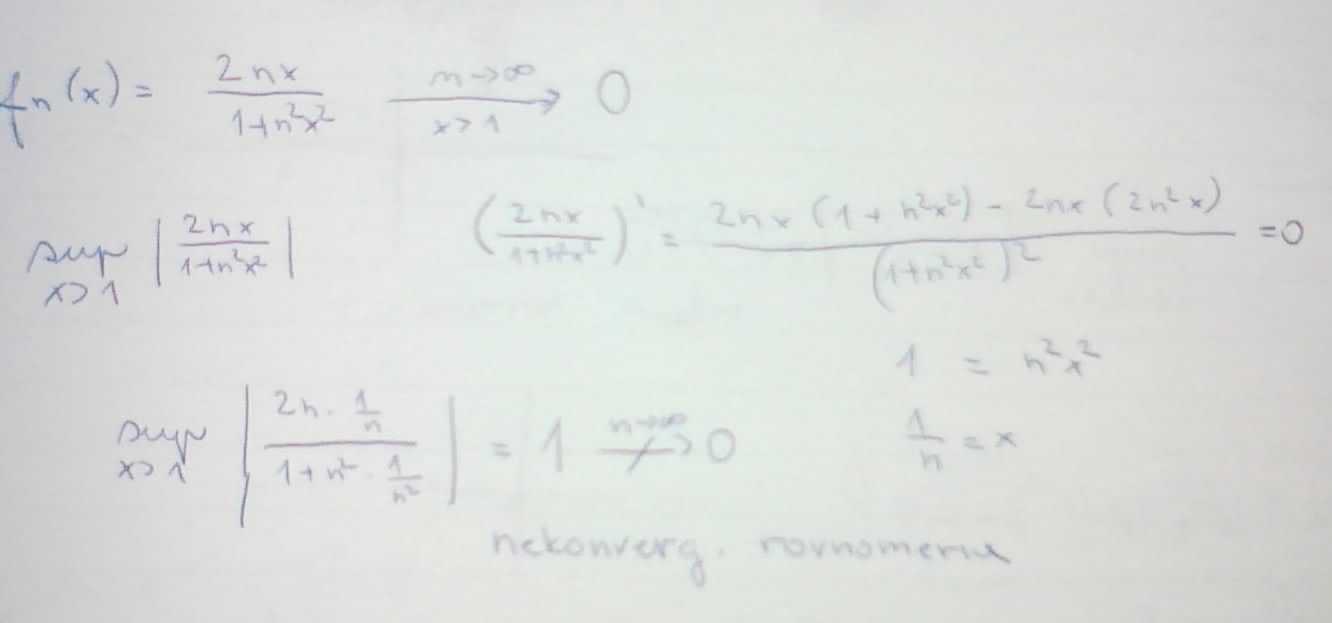 fn(x) = 2nx / 1+n²x² n→∞ / x>1 → 0
sup x>1 | 2nx / 1+n²x² | ( 2nx / 1+n²x² )' = 2nx (1+n²x²) - 2nx (2n²x) / (1+n²x²)² = 0
1 = n²x²
1/n = x
sup x>1 | 2n · 1/n / 1+n² · 1/n² | = 1 n→∞ ↛ 0
nekonverg. rovnomerne